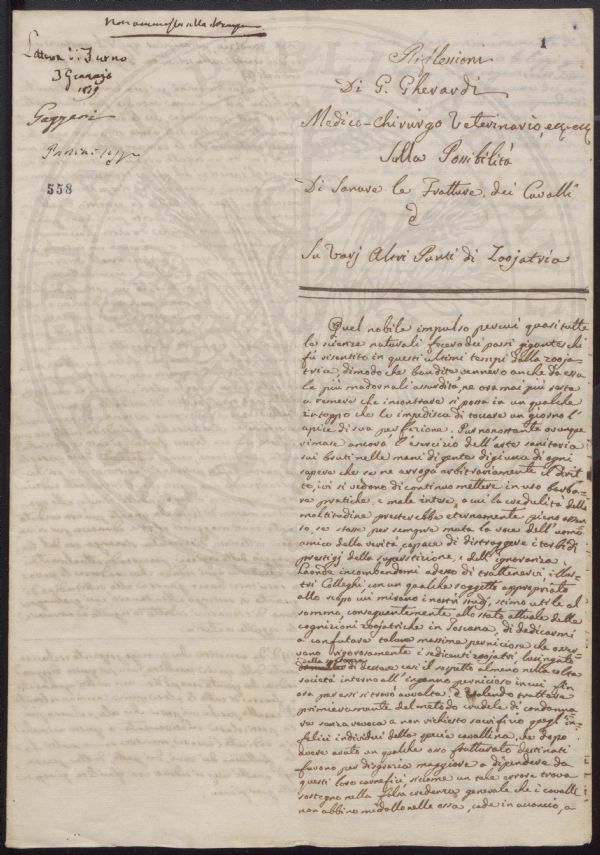 Non ammessa alla stampa
Lettura di Turno
3 Gennajo
1819
Gazzeri
1
Riflessioni
Di G. Gherardi
Medico-Chirurgo Veterinario, &c. &c.
Sulla Possibilità
Di Sanare le Fratture, dei Cavalli
E
Su Varj Altri Punti di Zoojatria
558
Quel nobile impulso per cui quasi tutte
le scienze naturali fecero dei passi giganteschi
fù risentito in questi ultimi tempi dalla zooja-
tria, dimodo che bandite vennero anche da essa
le più madornali assurdità, ne ora mai più resta
a temere che incontrare si possa in un qualche
intoppo che le impedisca di toccare un giorno l'
apice di sua perfezione. Pur nonostante ovunque
rimase ancora l'esercizio dell'arte sanitaria
sui bruti nelle mani di gente digiuna di ogni
sapere che se ne arroga arbitrariamente il Drit-
to, ivi si vedono di continuo mettere in uso barba-
re pratiche, e male intese, a cui la credulità della
moltitudine presterebbe eternamente pieno assen-
so, se stasse per sempre muta la voce dell'uomo
amico della verità, capace di distruggere i torbidi
prestigj della superstizione, e dell'ignoranza.
Laonde incombendomi adesso di trattenervi, illus-
tri Colleghi con un qualche soggetto appropriato
allo scopo cui mirano i nostri studj, stimo utile al
sommo, conseguentemente allo stato attuale delle
cognizioni zoojatriche in Toscana, di dedicarmi
a confutare talune massime perniciose che osser-
vano rigorosamente i sedicenti zoojatri, lusingato
della speranza
di destare così il sospetto almeno nella culta
società intorno all'inganno pernicioso in cui fin
ora per essi si trovò avvolta. E volendo trattare
primieramente del metodo crudele di condanna-
re senza revoca a non richiesto sacrifizio quegl'in-
felici individui della specie cavallina, che dopo
avere avuto un qualche osso fratturato destinati
furono per disgrazia maggiore a dipendere da
questi loro carnefici, siccome un tale errore trova
sostegno nella falsa credenza generale che i cavalli
non abbino midollo nelle ossa, cade in acconcio, a